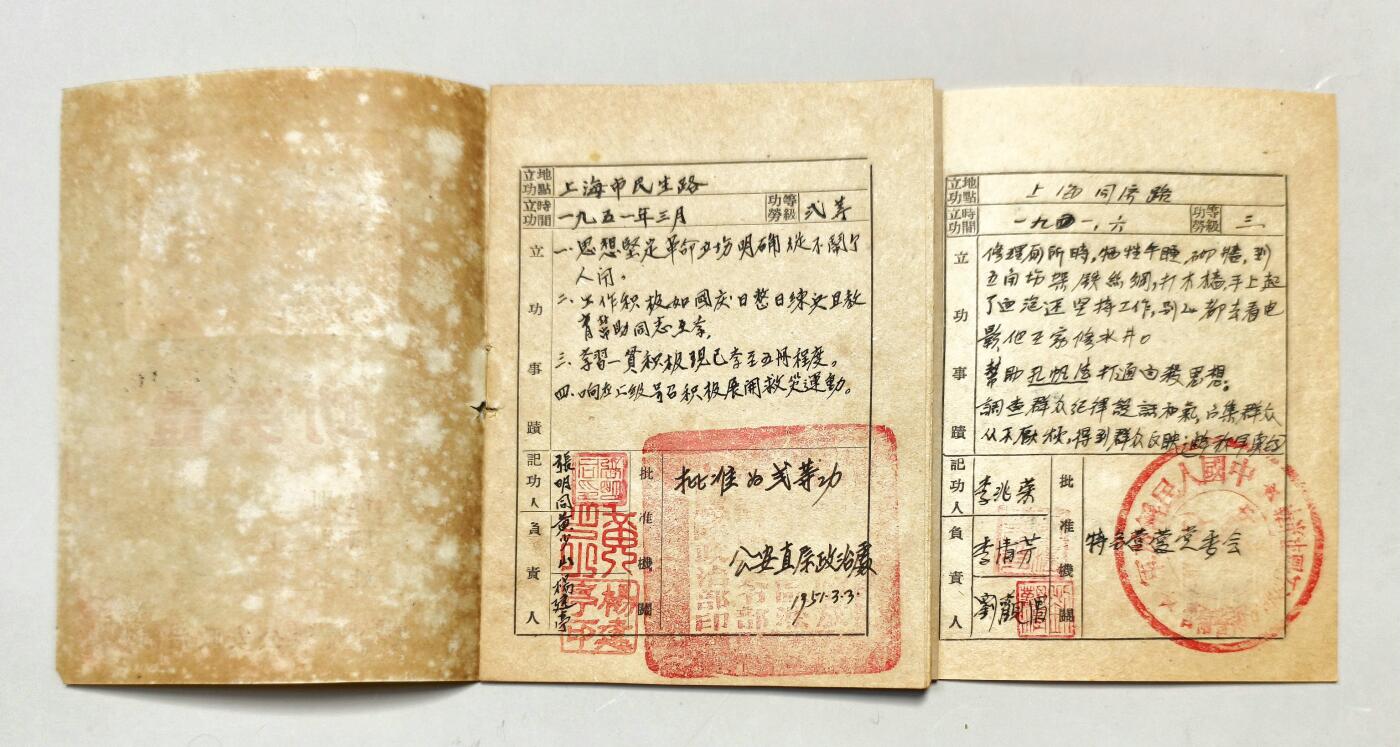 立功地點 上海市民生路
立功時間 一九五一年三月 功勞等級 弍等
立功事蹟
一、思想堅定革命立場明确從不鬧个
人问。
二、工作积极如國庆日整日練兵且教
育帮助同志立李。
三、学習一貫积极現已李至五册程度。
四、响应上級号召积极展開救災運動。
記功人 負責人
張明同 黃少山 楊建亭
批准機關
批准为弍等功
公安直属政治處
1951.3.3.
立功地點 上海同济路
立功時間 一九 一、六 功勞等級 三
立功事蹟
修理厠所時，牺牲午睡，砌墻，到
五角场架铁丝網，打木樁，手上起
了血泡还坚持工作，别人都去看电
影他在家修水井。
幫助孔帆法打通 思想。
調查群众纪律說話和氣，召集群众
从不厭 ，得到群众反映
記功人 李兆葉
負責人 李清芳
劉
批准機關
特 营党委会
中國人民